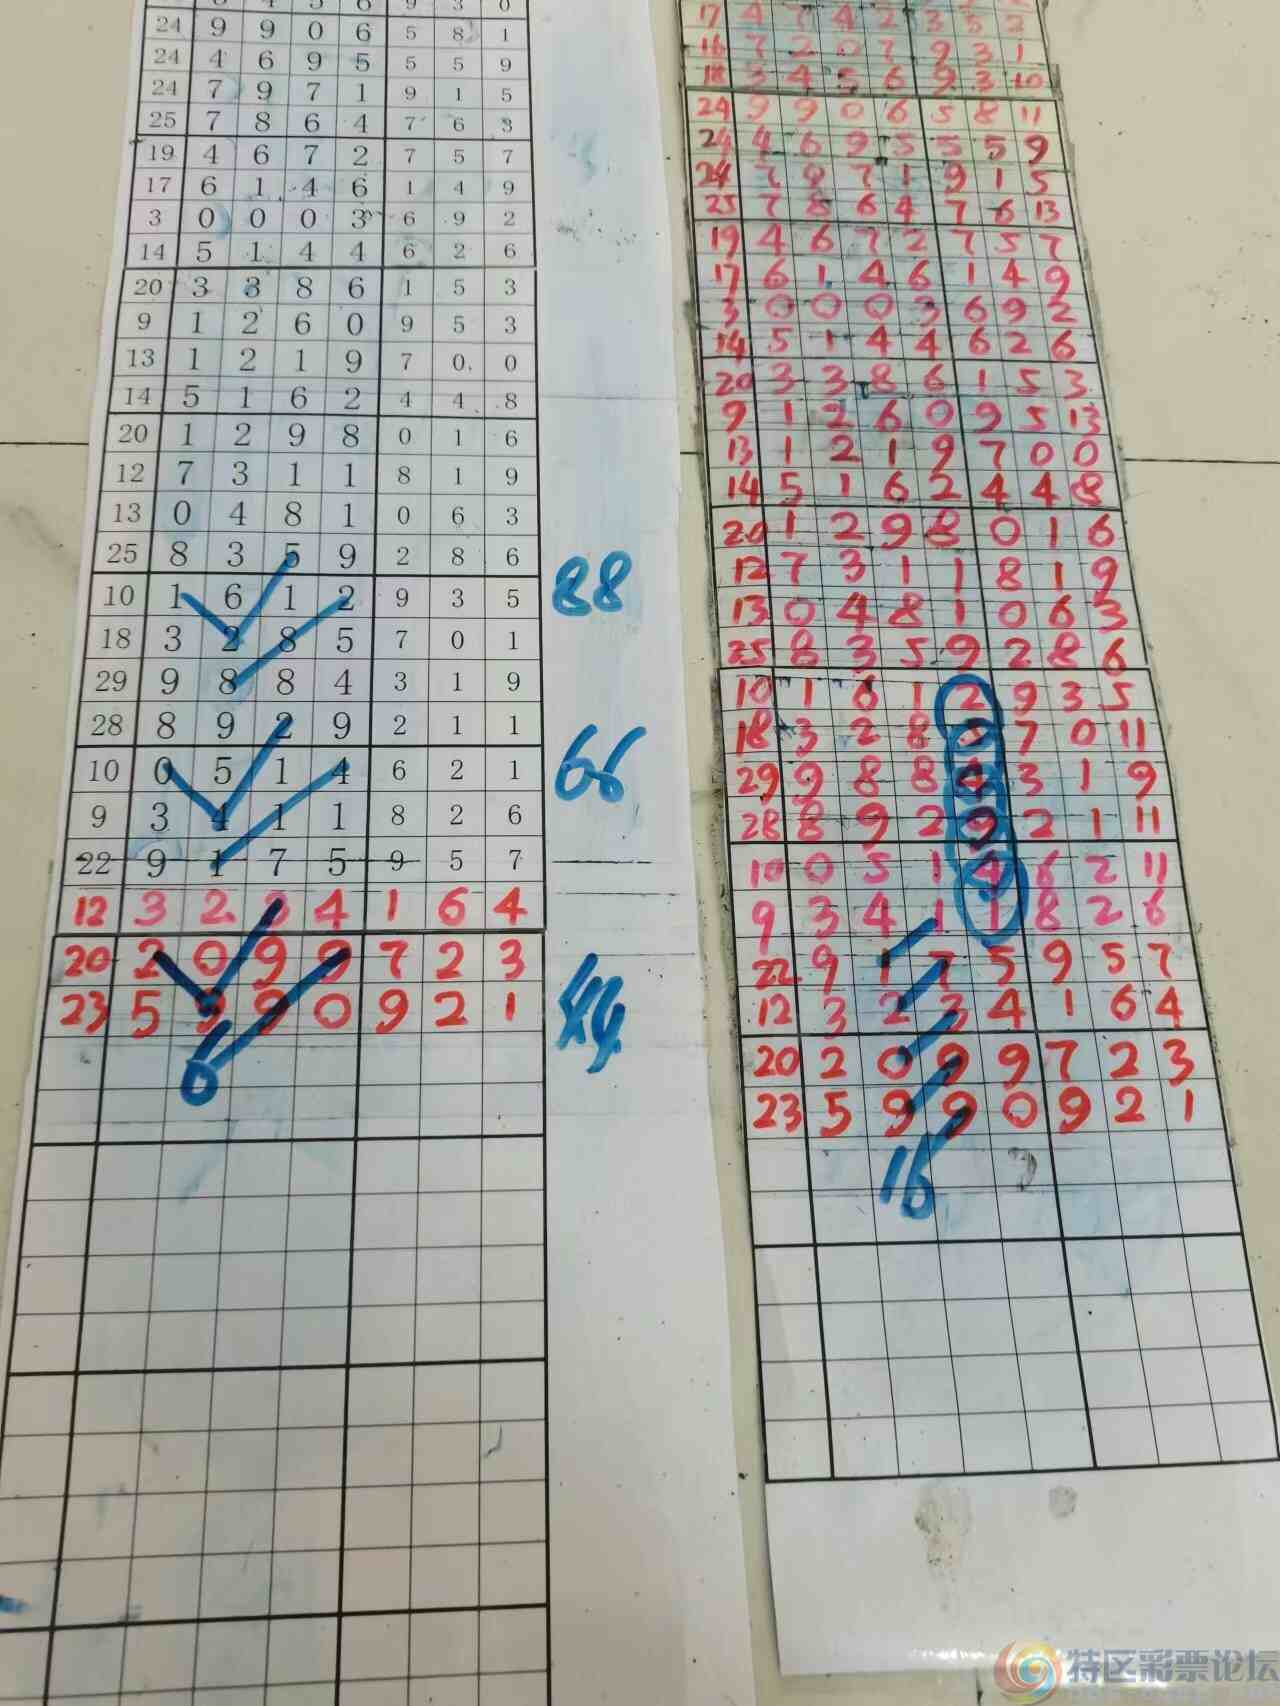 24 9 9 0 6 5 8 1
24 4 6 9 5 5 5 9
24 7 9 7 1 9 1 5
25 7 8 6 4 7 6 3
19 4 6 7 2 7 5 7
17 6 1 4 6 1 4 9
3 0 0 0 3 6 9 2
14 5 1 4 4 6 2 6
20 3 3 8 6 1 5 3
9 1 2 6 0 9 5 3
13 1 2 1 9 7 0 0
14 5 1 6 2 4 4 8
20 1 2 9 8 0 1 6
12 7 3 1 1 8 1 9
13 0 4 8 1 0 6 3
25 8 3 5 9 2 8 6
10 1 6 1 2 9 3 5
88
18 3 2 8 5 7 0 1
29 9 8 8 4 3 1 9
28 8 9 2 9 2 1 1
66
10 0 5 1 4 6 2 1
9 3 4 1 1 8 2 6
22 9 1 7 5 9 5 7
12 3 2 3 4 1 6 4
20 2 0 9 9 7 2 3
23 5 9 9 0 9 2 1
44
6
17 4 7 4 2 3 5 2
16 7 2 0 7 9 3 1
18 3 4 5 6 9 3 10
24 9 9 0 6 5 8 11
24 4 6 9 5 5 5 9
24 7 9 7 1 9 1 5
25 7 8 6 4 7 6 13
19 4 6 7 2 7 5 7
17 6 1 4 6 1 4 9
3 0 0 0 3 6 9 2
14 5 1 4 4 6 2 6
20 3 3 8 6 1 5 3
9 1 2 6 0 9 5 13
13 1 2 1 9 7 0 0
14 5 1 6 2 4 4 8
20 1 2 9 8 0 1 6
12 7 3 1 1 8 1 9
13 0 4 8 1 0 6 3
25 8 3 5 9 2 8 6
10 1 6 1 2 9 3 5
18 3 2 8 5 7 0 11
29 9 8 8 4 3 1 9
28 8 9 2 9 2 1 11
10 0 5 1 4 6 2 11
9 3 4 1 1 8 2 6
22 9 1 7 5 9 5 7
12 3 2 3 4 1 6 4
20 2 0 9 9 7 2 3
23 5 9 9 0 9 2 1
16
特区彩票论坛